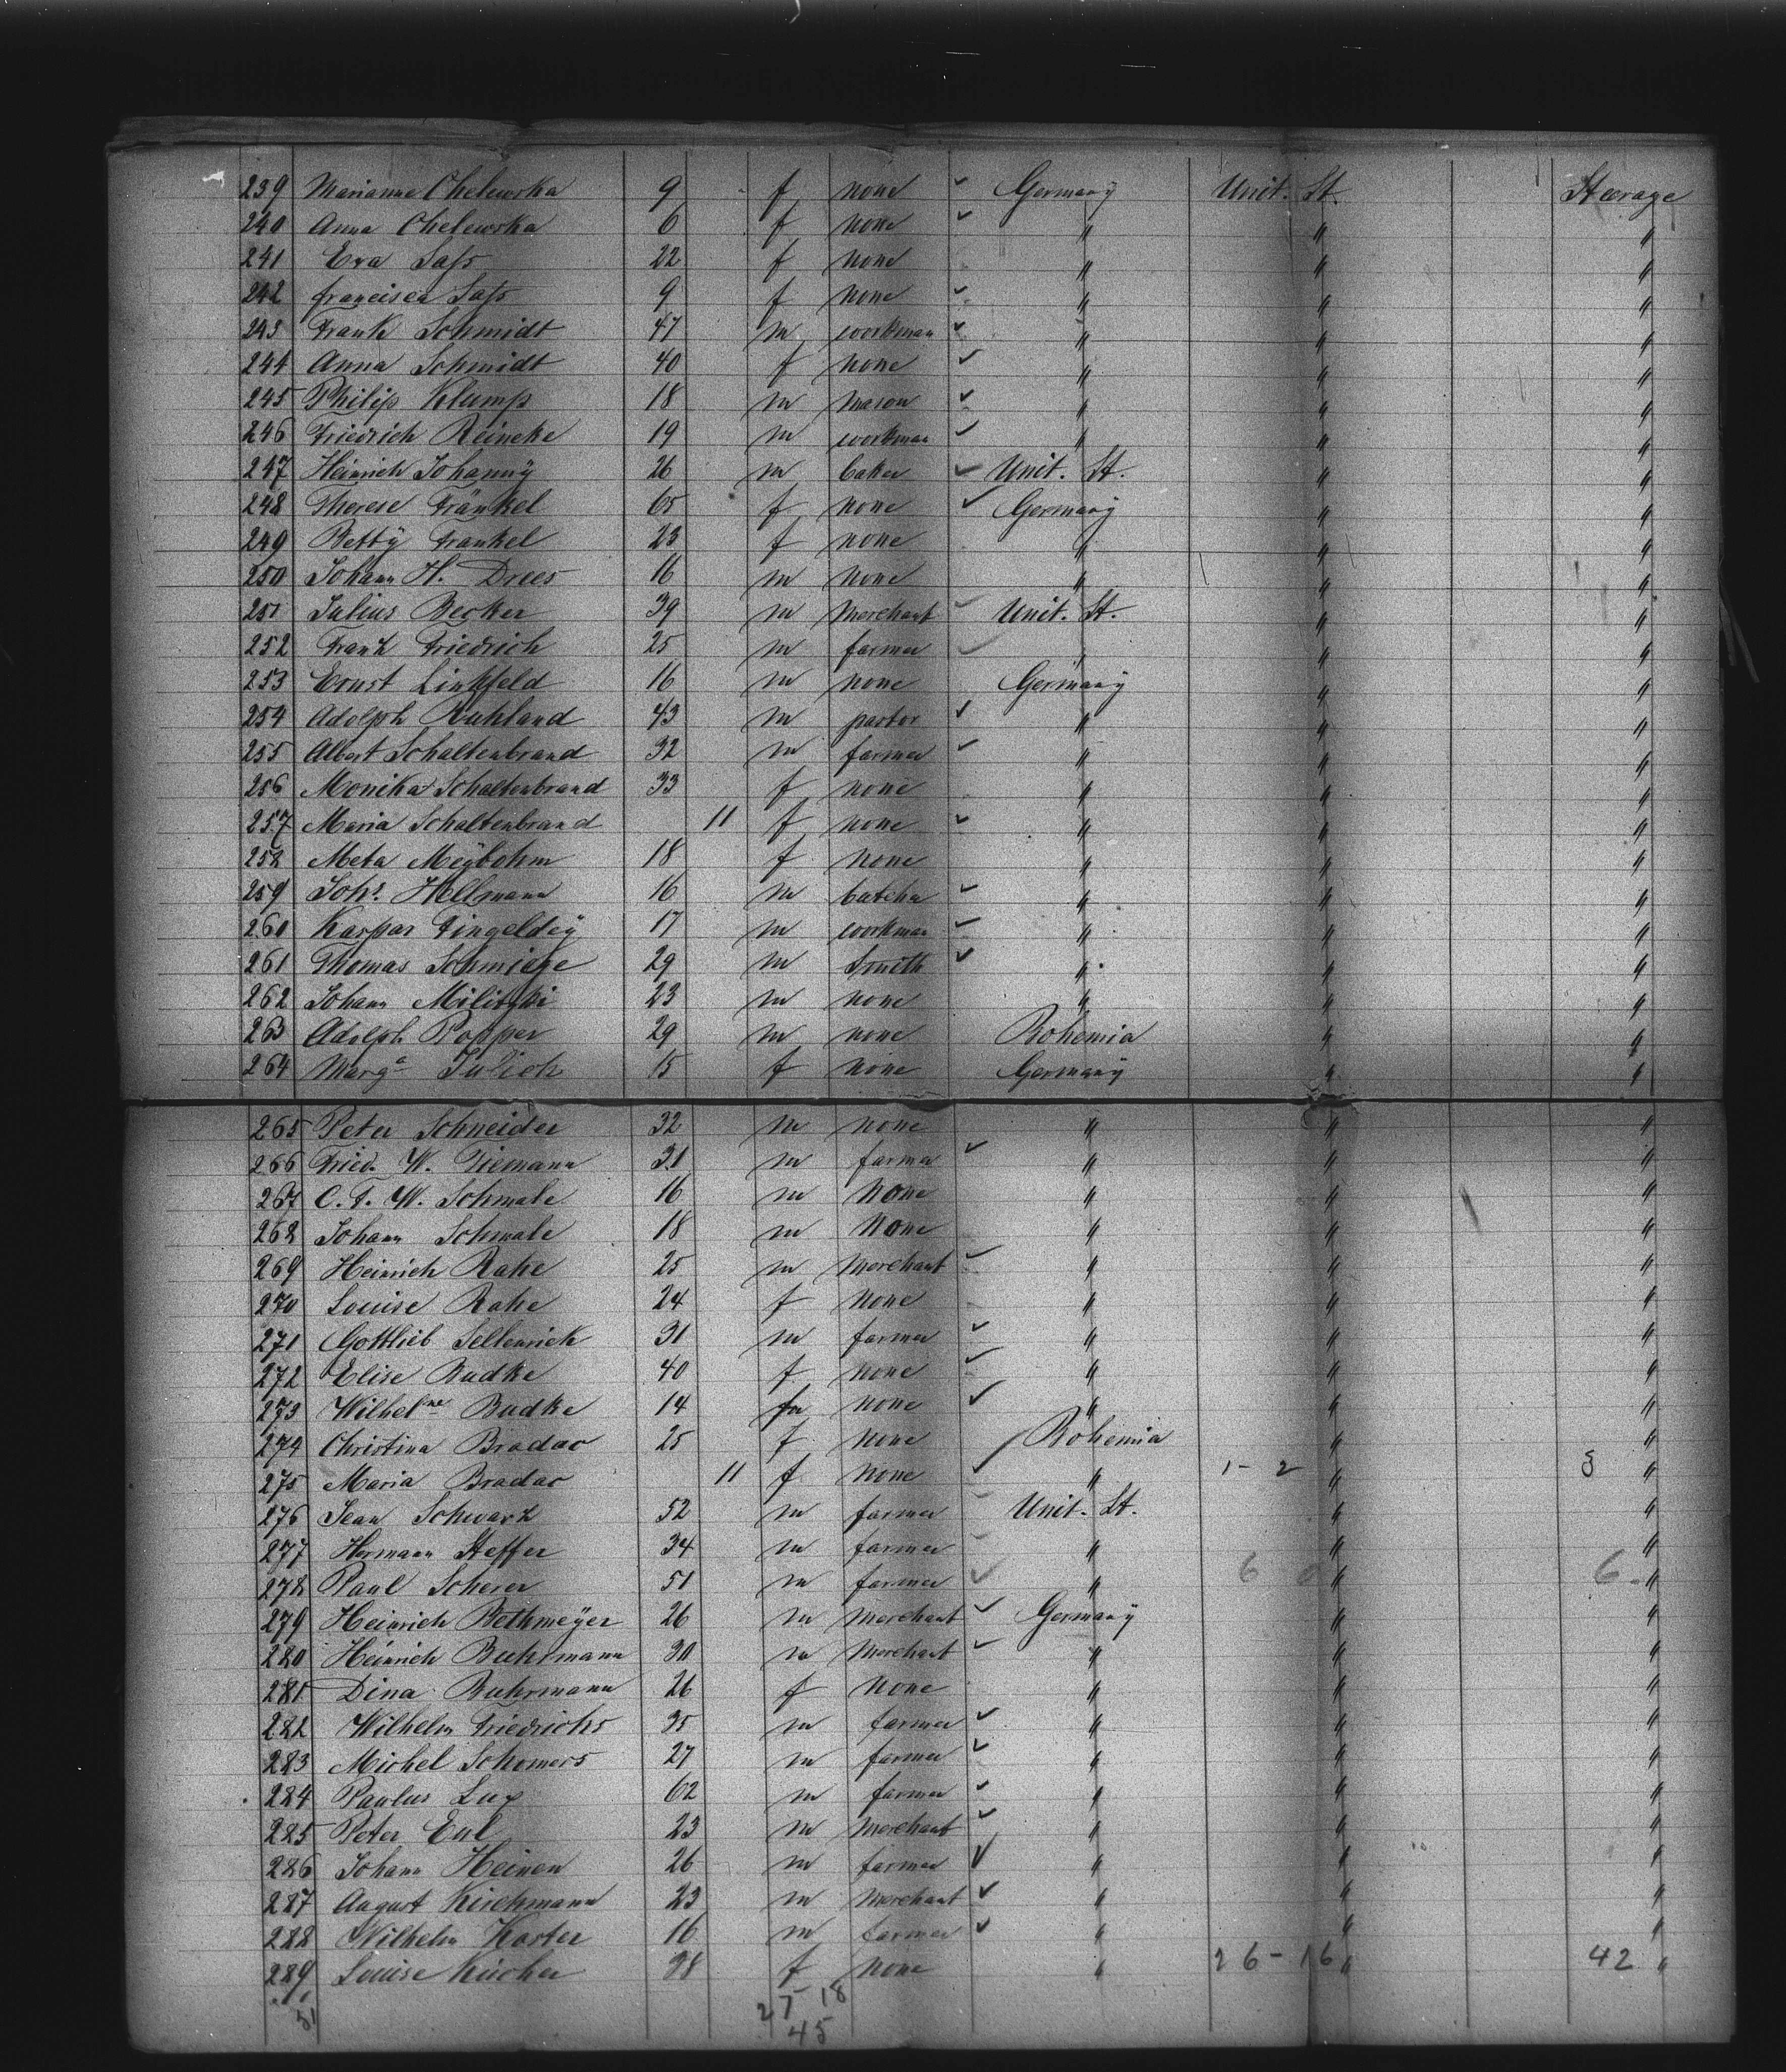 239 Marianne Chelewska 9 f none ✓ Germany Unit. St. Steerage
240 Anna Chelewska 6 f none ✓ " " "
241 Eva Saſs 22 f none " " "
242 francisca Saſs 9 f none ✓ " " "
243 Frank Schmidt 47 m workman ✓ " " "
244 Anna Schmidt 40 f none ✓ " " "
245 Philip Klump 18 m mason ✓ " " "
246 Friedrich Reineke 19 m workman ✓ " " "
247 Heinrich Johanny 26 m baker ✓ Unit. St. " "
248 Therese Fränkel 65 f none ✓ Germany " "
249 Betty Frankel 23 f none " " "
250 Johann H. Drees 16 m none " " "
251 Julius Becker 39 m Merchant ✓ Unit. St. " "
252 Frank Friedrich 25 m farmer ✓ " " "
253 Ernst Linkfeld 16 m none Germany " "
254 Adolph Ruhland 43 m pastor ✓ " " "
255 Albert Schaltenbrand 32 m farmer ✓ " " "
256 Monika Schaltenbrand 33 f none " " "
257 Maria Schaltenbrand 11 f none ✓ " " "
258 Meta Meybohm 18 f none " " "
259 Johs. Hellmann 16 m butcher ✓ " " "
260 Kaspar Dingeldey 17 m workman ✓ " " "
261 Thomas Schmiege 29 m Smith ✓ " " "
262 Johann 23 m none " " "
263 Adolph Popper 29 m none Bohemia " "
264 Marga Julich 15 f none Germany " "
265 Peter Schneider 32 m none " " "
266 Fried. W. Tiemann 31 m farmer ✓ " " "
267 C. F. W. Schmale 16 m none " " "
268 Johann Schmale 18 m none " " "
269 Heinrich Rahe 25 m Merchant ✓ " " "
270 Louise Rahe 24 f none " " "
271 Gottlieb Sellenrick 31 m farmer ✓ " " "
272 Elise Budke 40 f none ✓ " " "
273 Wilhelne Budke 14 f none ✓ " " "
274 Christina Bradac 25 f none Bohemia " "
275 Maria Bradac 11 f none ✓ " 1 - 2 " 3 "
276 Jean Schwark 52 m farmer Unit. St. " "
277 Hermann Steffer 34 m farmer " " "
278 Paul Scherer 51 m farmer ✓ " 6 0 " 6 "
279 Heinrich Bothmeyer 26 m Merchant ✓ Germany " "
280 Heinrich Buhrmann 30 m Merchant ✓ " " "
281 Dina Buhrmann 26 f none " " "
282 Wilhelm Friedrichs 35 m farmer ✓ " " "
283 Michel Schomers 27 m farmer ✓ " " "
284 Paulus Lux 62 m farmer ✓ " " "
285 Peter Eul 23 m Merchant ✓ " " "
286 Johann Heinen 26 m farmer ✓ " " "
287 August Kirchmann 23 m Merchant ✓ " " "
288 Wilhelm Koster 16 m farmer ✓ " " "
289 Louise Kircher 38 f none " 26 - 16 " 42 "
51 27 - 18
45